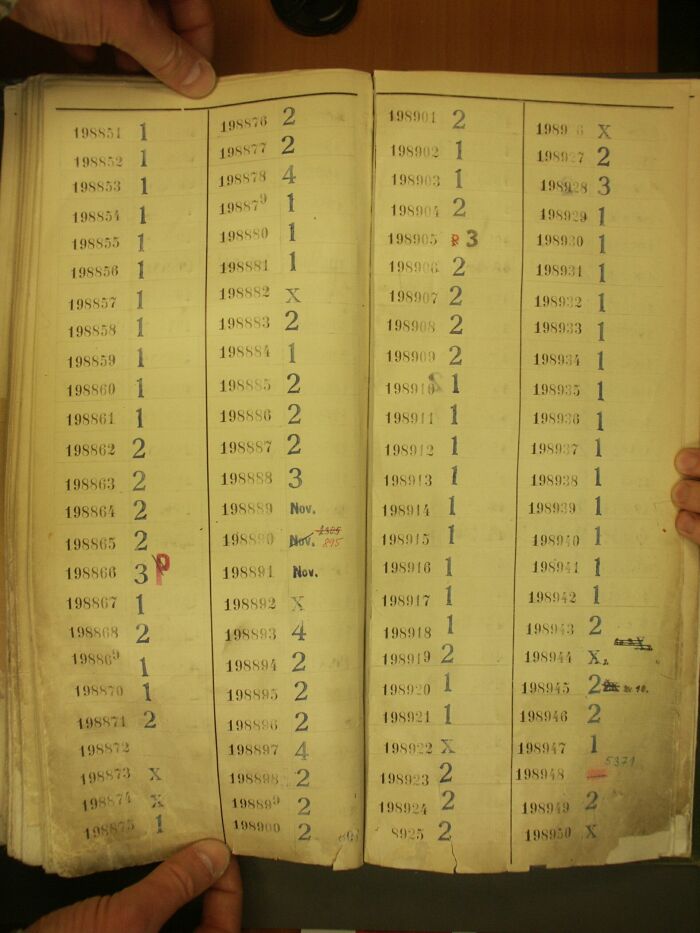 198851 1
198852 1
198853 1
198854 1
198855 1
198856 1
198857 1
198858 1
198859 1
198860 1
198861 1
198862 2
198863 2
198864 2
198865 2
198866 3 P
198867 1
198868 2
198869 1
198870 1
198871 2
198872
198873 X
198874 X
198875 1
198876 2
198877 2
198878 4
198879 1
198880 1
198881 1
198882 X
198883 2
198884 1
198885 2
198886 2
198887 2
198888 3
198889 Nov.
198890 Nov. 895
198891 Nov.
198892 X
198893 4
198894 2
198895 2
198896 2
198897 4
198898 2
198899 2
198900 2
198901 2
198902 1
198903 1
198904 2
198905 P 3
198906 2
198907 2
198908 2
198909 2
198910 1
198911 1
198912 1
198913 1
198914 1
198915 1
198916 1
198917 1
198918 1
198919 2
198920 1
198921 1
198922 X
198923 2
198924 2
8925 2
1989 6 X
198927 2
198928 3
198929 1
198930 1
198931 1
198932 1
198933 1
198934 1
198935 1
198936 1
198937 1
198938 1
198939 1
198940 1
198941 1
198942 1
198943 2
198944 X
198945 2
198946 2
198947 1
198948 5371
198949 2
198950 X